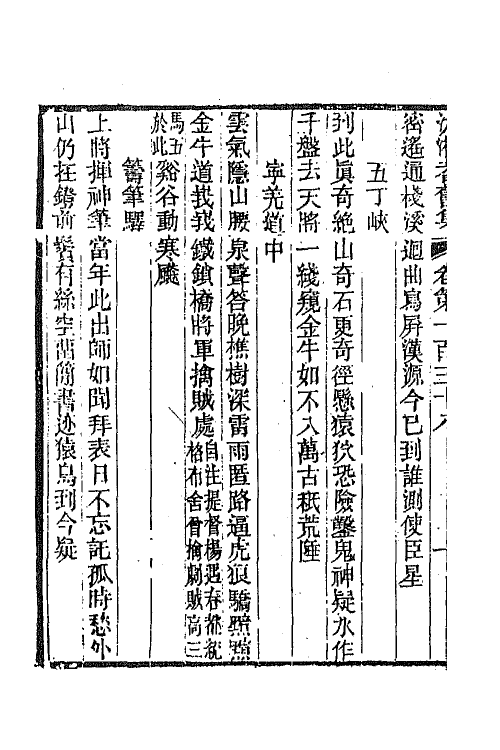 沅湘耆舊集 卷第一百三十八 一
密遙通棧溪迴曲寫屛漢源今已到誰測使臣星
五丁峽
到此眞奇絕山奇石更奇徑懸猿狖恐險鑿鬼神疑水作
千盤去天將一綫窺金牛如不入萬古秖荒陲
寧羌道中
雲氣隱山腰泉聲答晚樵樹深雷雨匿路逼虎狼驕黯黯
金牛道峩峩鐵鎖橋將軍擒賊處自注提督楊遇春都統格布舍曾擒劇賊高三
馬五於此谿谷動寒飇
籌筆驛
上將揮神筆當年此出師如聞拜表日不忘託孤時愁外
山仍拄前鬢有絲空畱簡書迹猿鳥到今疑